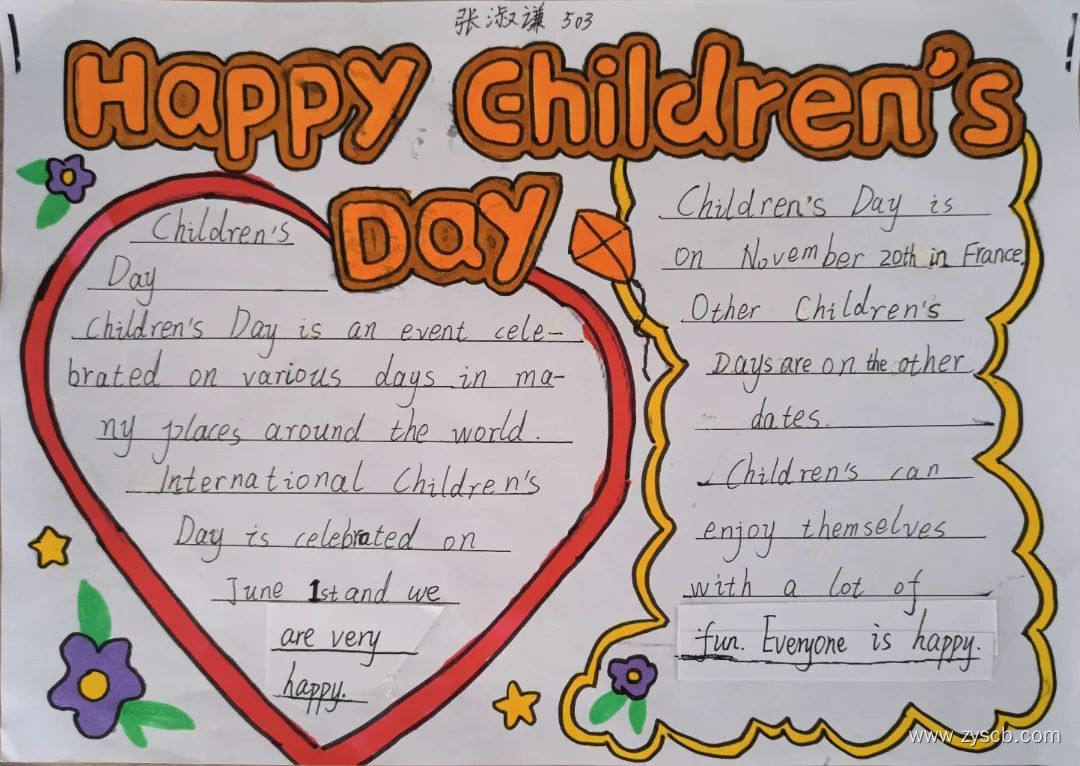 张淑谦 503
Happy Children's
Day
Children's
Day
Children's Day is an event cele-
brated on various days in ma-
ny places around the world.
International Children's
Day is celebrated on
June 1st and we
are very
happy.
Children's Day is
on November 20th in France.
Other Children's
Days are on the other
dates.
Children's can
enjoy themselves
with a lot of
fun. Everyone is happy.
www.zyscb.com